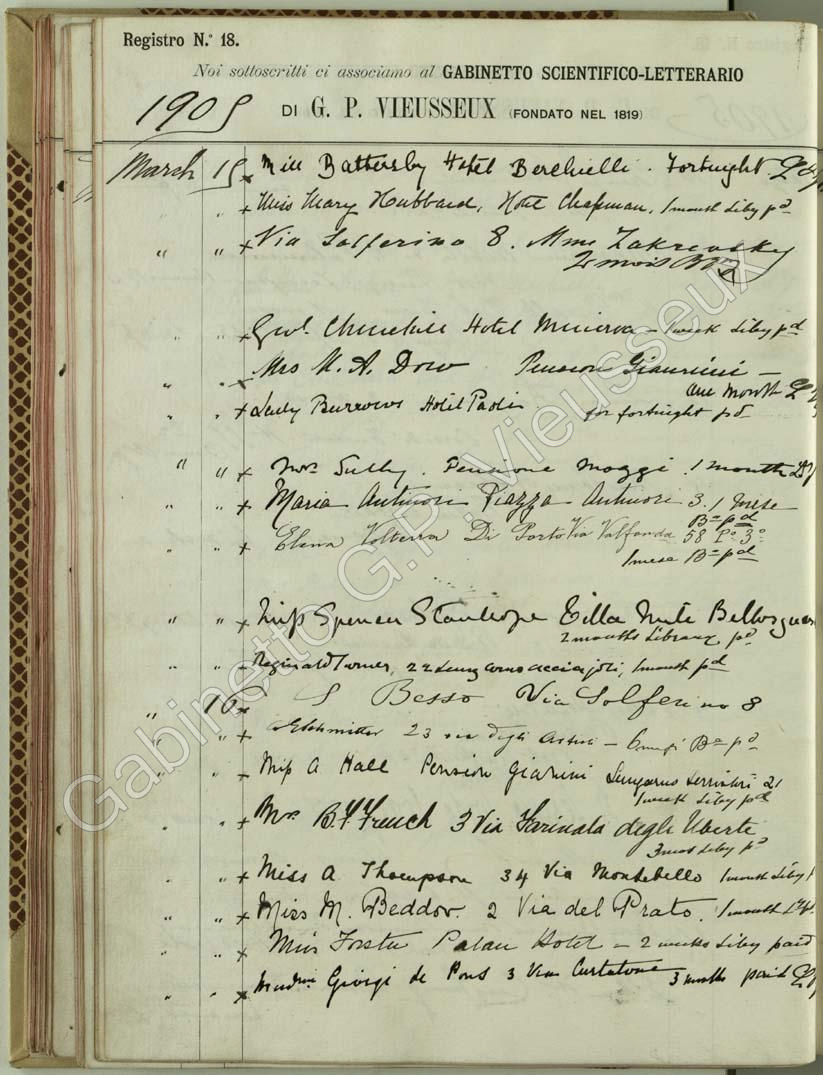 Registro N.° 18.
Noi sottoscritti ci associamo al GABINETTO SCIENTIFICO-LETTERARIO
1905 DI G. P. VIEUSSEUX (FONDATO NEL 1819)
March 15 x Miss Battersby Hotel Berchielli. Fortnight
" x Miss Mary Hubbard, Hotel Chapman, 1 month Liby pd
" " x Via Solferino 8. Mme Zakrevsky
2 mois
" " x Genl. Churchill Hotel Minerva - 1 week Liby pd
" " x Mrs M. A. Dow Pension Giannini -
One Month
" " x Lady Burrows Hotel Paoli for fortnight pd
" " x Mrs Sully. Pensione Moggi. 1 month
" " x Maria Antinori Piazza Antinori 3. 1 mese
Ba pd
" " x Elena Volterra Di Porto Via Valfonda 58 Po 3o
1 mese Ba pd
" " x Miss Spencer Stanhope Villa Nuti Bellosguardo
2 months Library pd
" " x Reginald Turner, 22 Lung'arno acciajoli, 1 month pd
" 16 x Besso Via Solferino 8
" " x 23 via degli Artisti - Ba pd
" " x Miss A Hall Pension Gianini Lungarno Serristori 21
1 week Liby pd
" " x Mrs B. F. French 3 Via Farinata degli Uberti
3 mos Liby pd
" " x Miss A Thompson 34 Via Montebello 1 month Liby
" " x Miss M. Beddoe. 2 Via del Prato. 1 month
" " x Miss Forster Palace Hotel - 2 weeks Liby paid
" " x Giorgi de Pons 3 Via Curtatone 3 months paid
Gabinetto G.P. Vieusseux